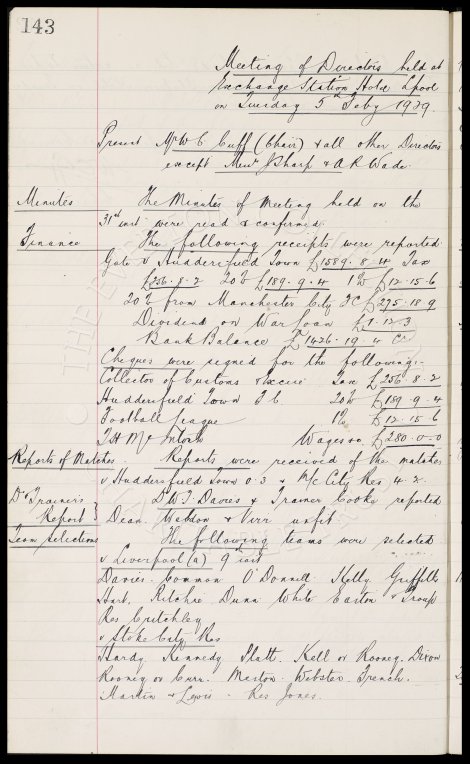 143
Meeting of Directors held at
Exchange Station Hotel Lpool
on Tuesday 5th Feby 1929.
Present Mr W C Cuff (Chair) & all other Directors
except Messrs J Sharp & A R Wade.
Minutes The Minutes of Meeting held on the
31st inst were read & confirmed.
Finance The following receipts were reported
Gate v Huddersfield Town £1589. 8. 4 Tax
£256. 8. 2 20% £189. 9. 4 1% £12. 15. 6
20% from Manchester City FC £275. 18. 9
Dividend on War Loan £1. 12. 3
Bank Balance £1426. 19. 4 Cr
Cheques were signed for the following:-
Collector of Customs & Excise Tax £256. 8. 2
Huddersfield Town F.C. 20% £189. 9. 4
Football League 1% £12. 15. 6
T H McIntosh Wages £280. 0. 0
Reports of Matches. Reports were received of the matches
v Huddersfield Town 0. 3 & M/c City Res 4. 2.
Dr & Trainers Dr W J Davies & Trainer Cooke reported
Report } Dean. Weldon & Virr unfit.
Team selections The following teams were selected
v Liverpool (a) 9th inst
Davies. Common O'Donnell. Kelly Griffiths
Hart. Ritchie. Dunn White Easton & Troup
Res Critchley
v Stoke City Res
Hardy. Kennedy Platt. Kell or Rooney. Dixon
Rooney or Curr. Meston. Webster. French.
Martin & Lewis. Res Jones.